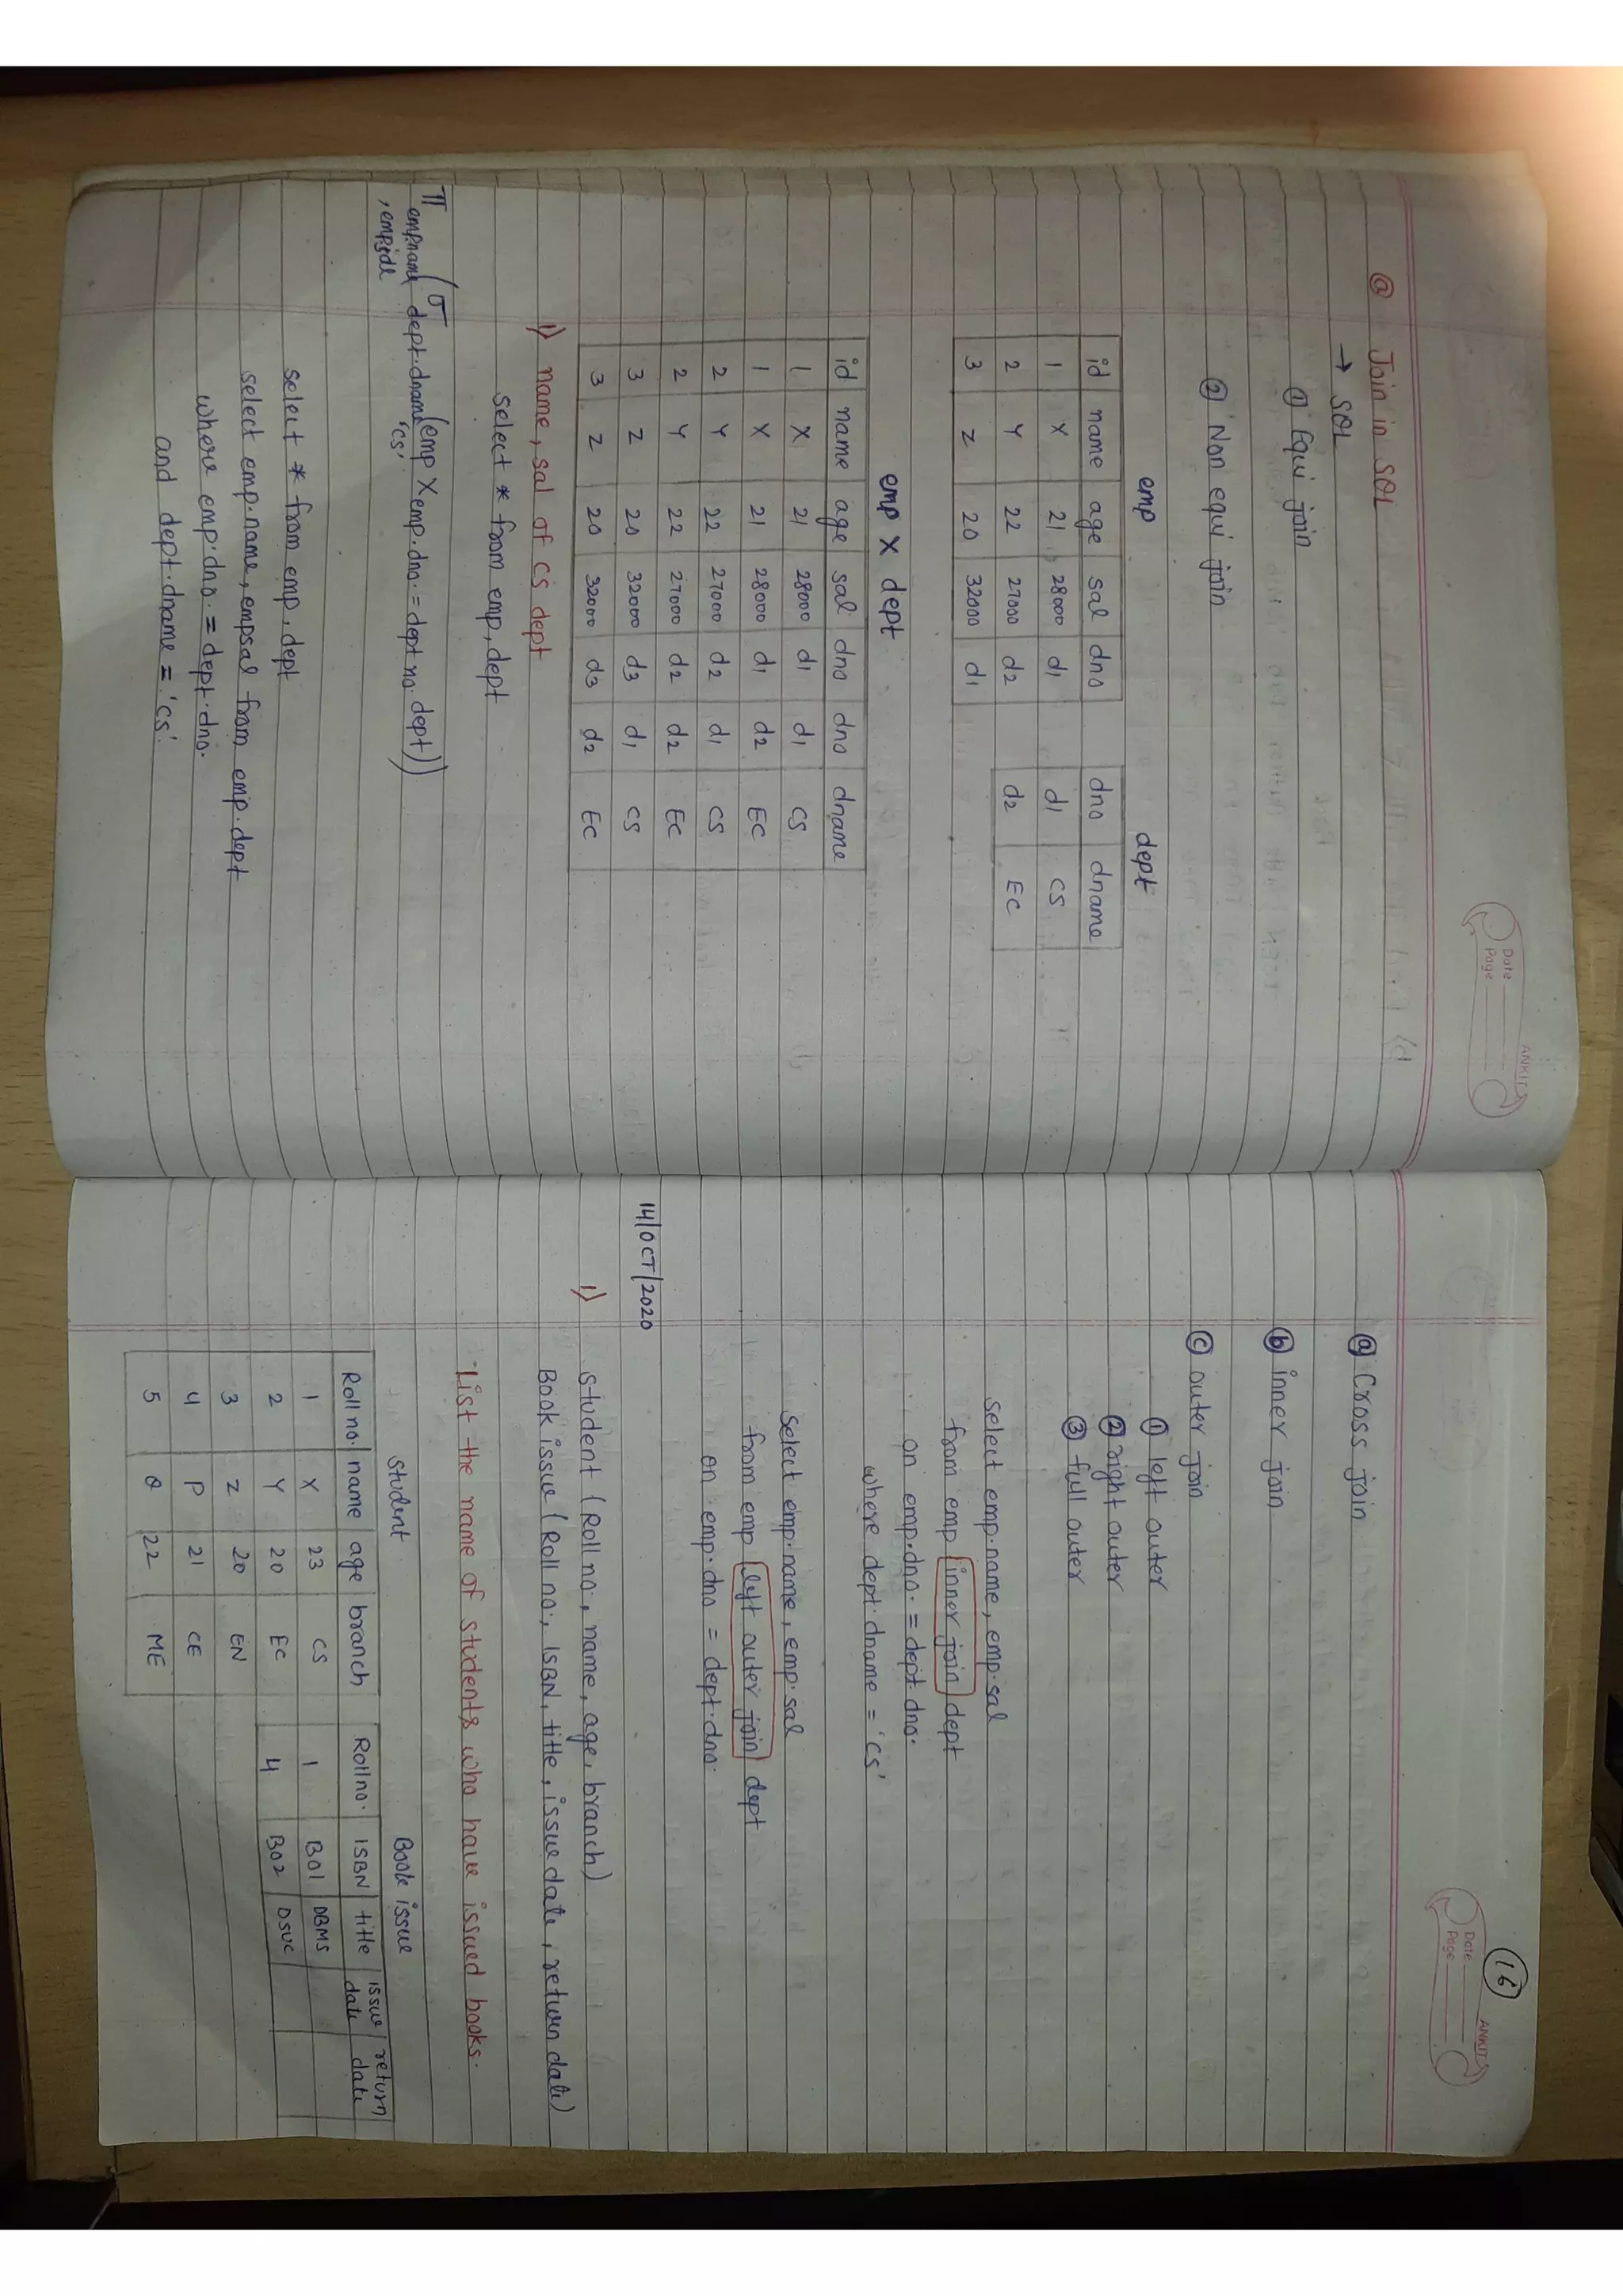 Date
Page
ANKIT
@ Join in SQL
→ SQL
① Equi join
② Non equi join
emp dept
id name age sal dno dno dname
1 X 21 28000 d1 d1 CS
2 Y 22 27000 d2 d2 EC
3 Z 20 32000 d1
emp X dept
id name age sal dno dno dname
1 X 21 28000 d1 d1 CS
1 X 21 28000 d1 d2 EC
2 Y 22 27000 d2 d1 CS
2 Y 22 27000 d2 d2 EC
3 Z 20 32000 d3 d1 CS
3 Z 20 32000 d3 d2 EC
1) name, sal of CS dept
select * from emp, dept
π emp.name (σ dept.dname (emp X emp.dno. = dept no. dept))
'CS'
select * from emp, dept
select emp.name, empsal from emp.dept
where emp.dno. = dept.dno.
and dept.dname = 'CS'.
16
Date
Page
ANKIT
ⓐ Cross join
ⓑ inner join
ⓒ outer join
① left outer
② right outer
③ full outer
Select emp.name, emp.sal
from emp inner join dept
on emp.dno. = dept.dno.
where dept.dname = 'CS'
Select emp.name, emp.sal
from emp left outer join dept
on emp.dno = dept.dno.
14/OCT/2020
1) Student (Roll no., name, age, branch)
Book issue (Roll no., ISBN, title, issue date, return date)
List the name of students who have issued books.
Student Book issue
Roll no. name age branch Roll no. ISBN title issue date return date
1 X 23 CS 1 B01 DBMS
2 Y 20 EC 4 B02 DSUC
3 Z 20 EN
4 P 21 CE
5 Q 22 ME